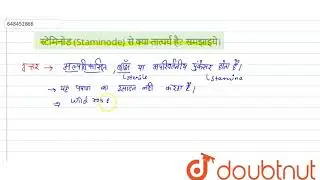 648452868
स्टेमिनोड (Staminode) से क्या तात्पर्य है? समझाइये।
उत्तर → अल्पविकसित, बाँझ या अपरिवर्तनीय पुंकेसर होता है।
↳ sterile ↳ stamina
→ यह पराग का उत्पादन नहीं करता है।
⇒ Wild ros
doubtnut